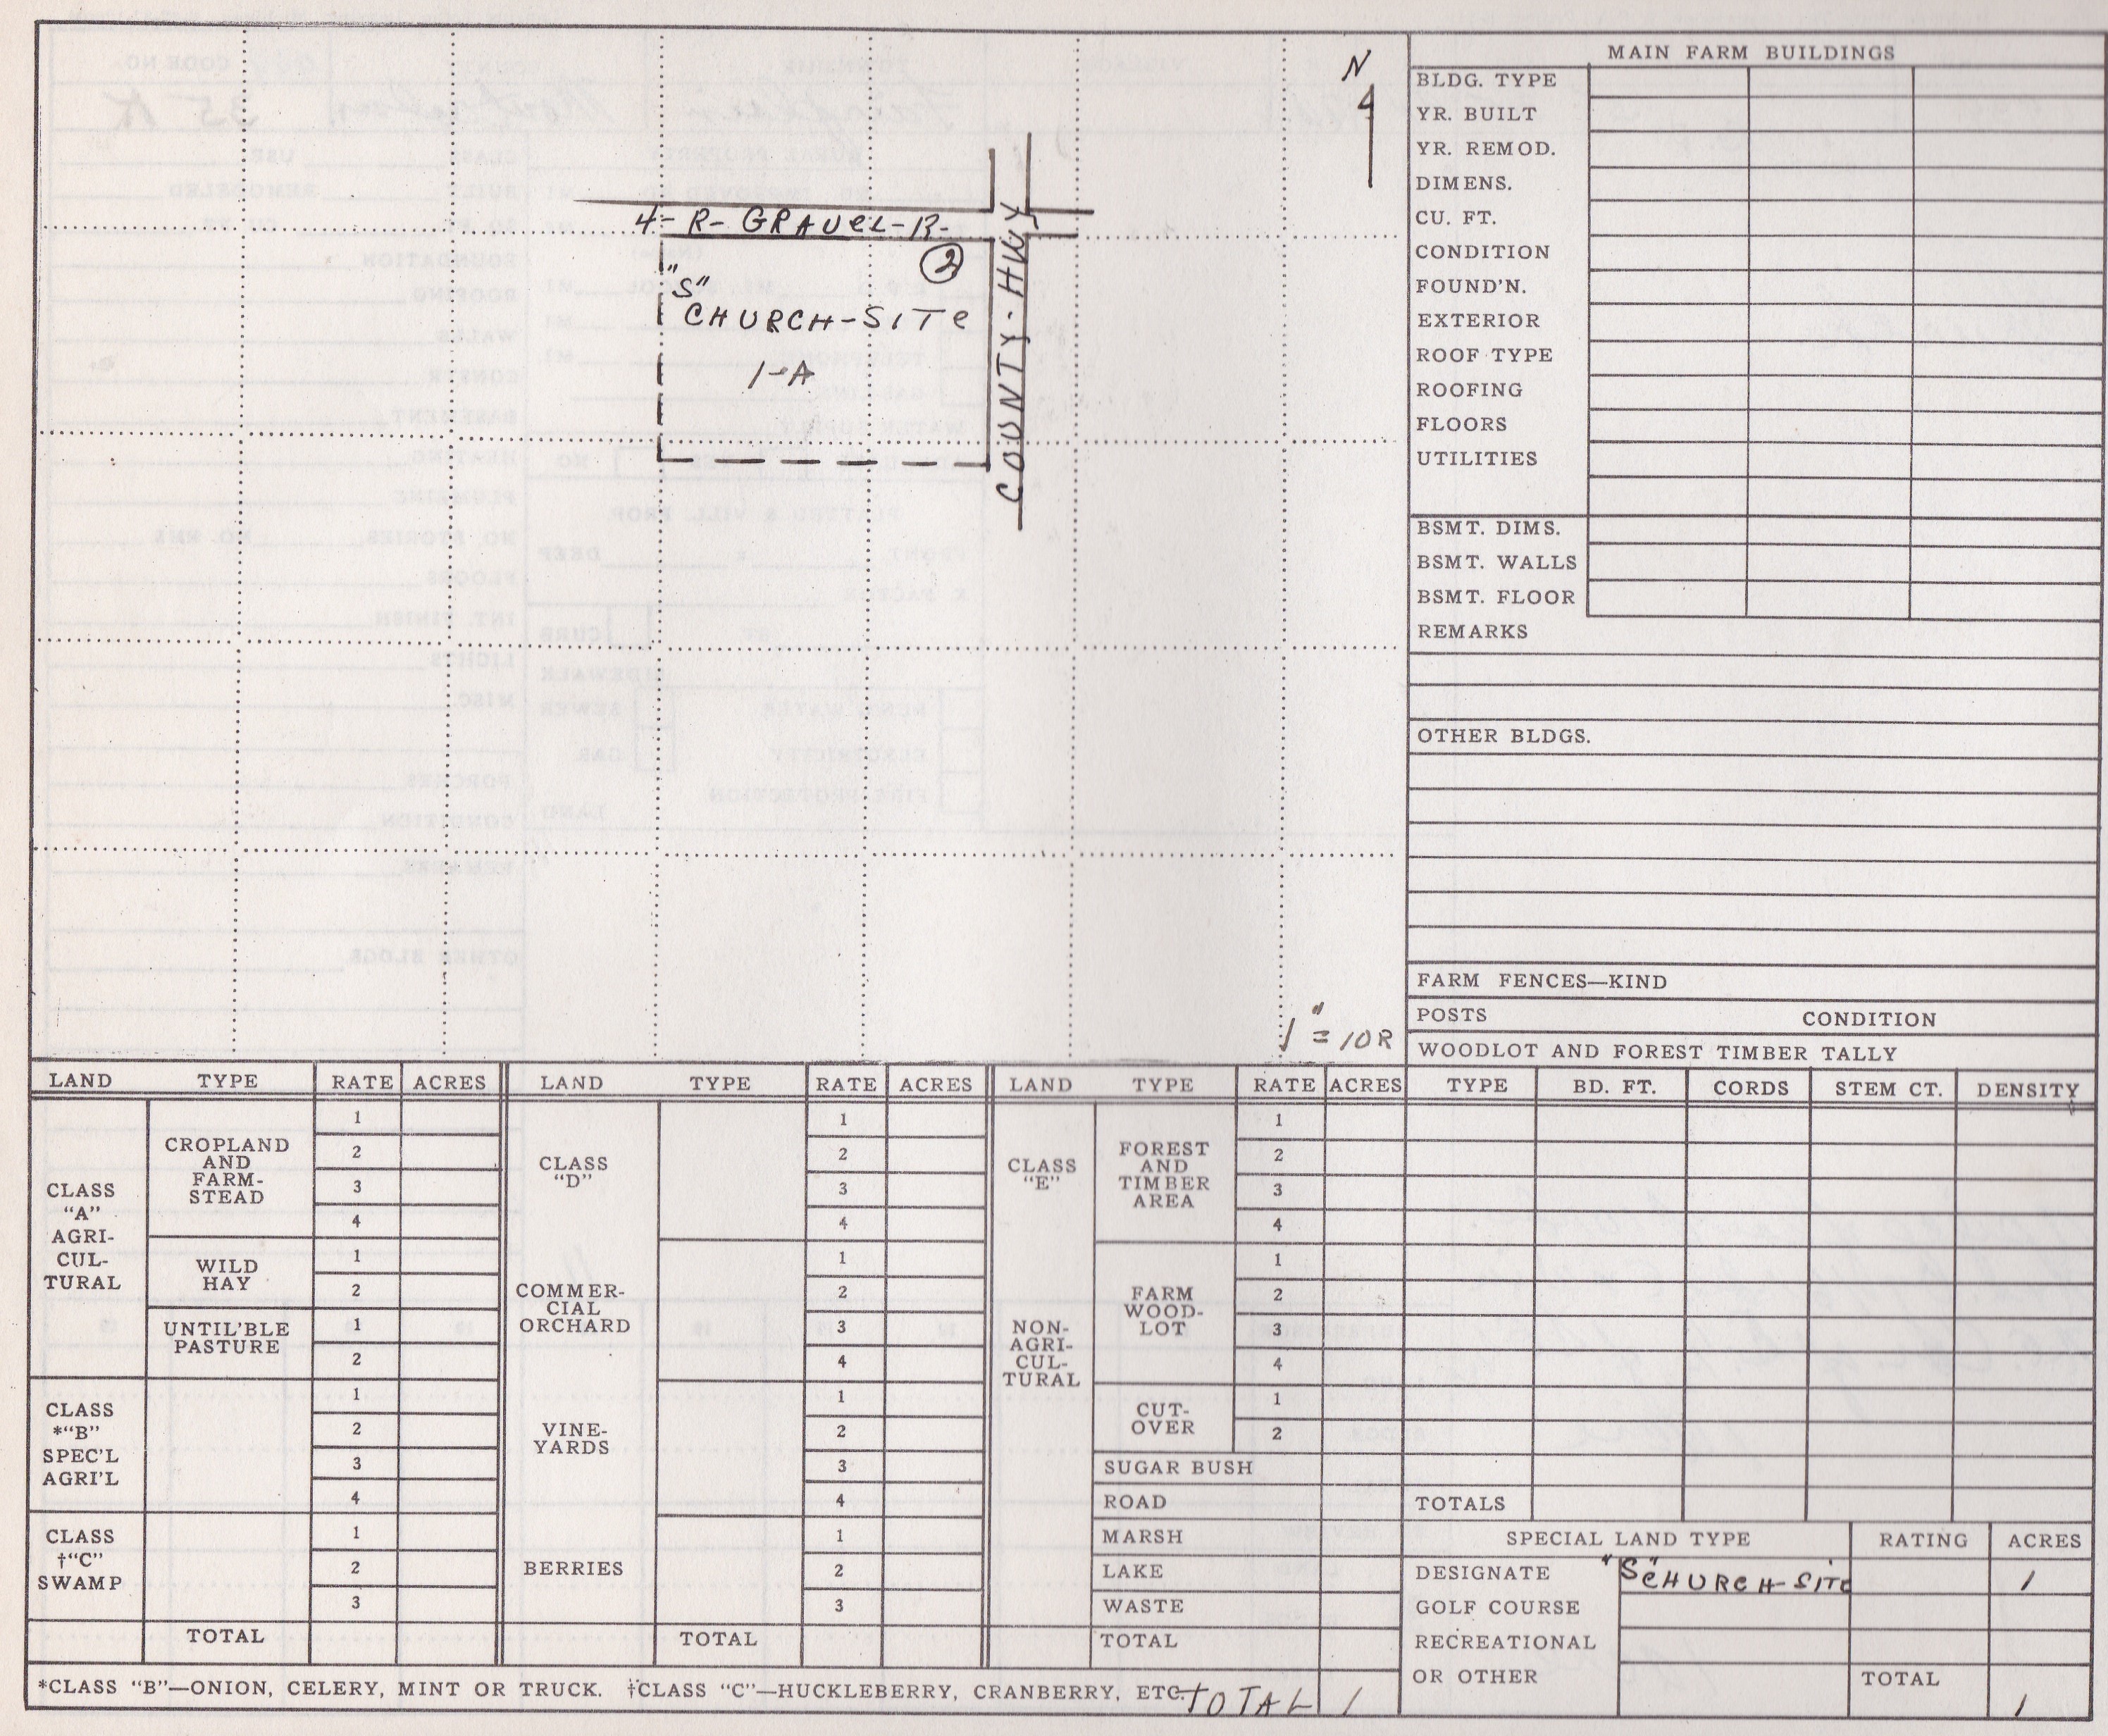 N
4- R- GRAVEL-R-
2
"S"
CHURCH-SITE
1-A
COUNTY-HWY
1" = 10R
MAIN FARM BUILDINGS
BLDG. TYPE
YR. BUILT
YR. REMOD.
DIMENS.
CU. FT.
CONDITION
FOUND'N.
EXTERIOR
ROOF TYPE
ROOFING
FLOORS
UTILITIES
BSMT. DIMS.
BSMT. WALLS
BSMT. FLOOR
REMARKS
OTHER BLDGS.
FARM FENCES—KIND
POSTS CONDITION
WOODLOT AND FOREST TIMBER TALLY
TYPE BD. FT. CORDS STEM CT. DENSITY
TOTALS
LAND TYPE RATE ACRES
CLASS
"A"
AGRI-
CUL-
TURAL
CROPLAND
AND
FARM-
STEAD
1
2
3
4
WILD
HAY
1
2
UNTIL'BLE
PASTURE
1
2
CLASS
*"B"
SPEC'L
AGRI'L
1
2
3
4
CLASS
†"C"
SWAMP
1
2
3
TOTAL
LAND TYPE RATE ACRES
CLASS
"D"
1
2
3
4
COMMER-
CIAL
ORCHARD
1
2
3
4
VINE-
YARDS
1
2
3
4
BERRIES
1
2
3
TOTAL
LAND TYPE RATE ACRES
CLASS
"E"
NON-
AGRI-
CUL-
TURAL
FOREST
AND
TIMBER
AREA
1
2
3
4
FARM
WOOD-
LOT
1
2
3
4
CUT-
OVER
1
2
SUGAR BUSH
ROAD
MARSH
LAKE
WASTE
TOTAL
SPECIAL LAND TYPE RATING ACRES
DESIGNATE "S" CHURCH-SITE 1
GOLF COURSE
RECREATIONAL
OR OTHER TOTAL 1
*CLASS "B"—ONION, CELERY, MINT OR TRUCK. †CLASS "C"—HUCKLEBERRY, CRANBERRY, ETC. TOTAL 1